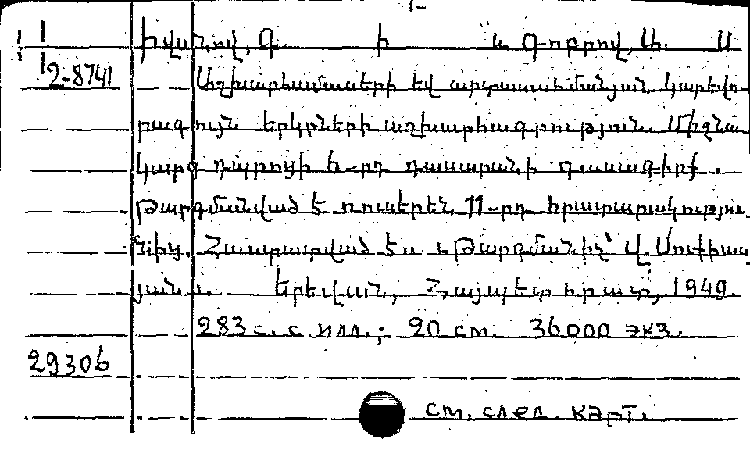 Իվանով, Գ. Ի. և Գ. Դոբրով, Ա. Ս.
2-8741 Աշխարհամասերի եվ արտասահմանյան կարևո-
րագույն երկրների աշխարհագրություն. Միջնա-
կարգ դպրոցի 6-րդ դասարանի դասագիրք.
Թարգմանված է ռուսերեն 11-րդ հրատարակությու-
նից. Հաստատված է. Թարգմանիչ՝ Վ.
յան. Երևան, Հայպետհրատ, 1949.
283 с. с илл.; 20 см. 36000 экз.
29306
см. след. карт.